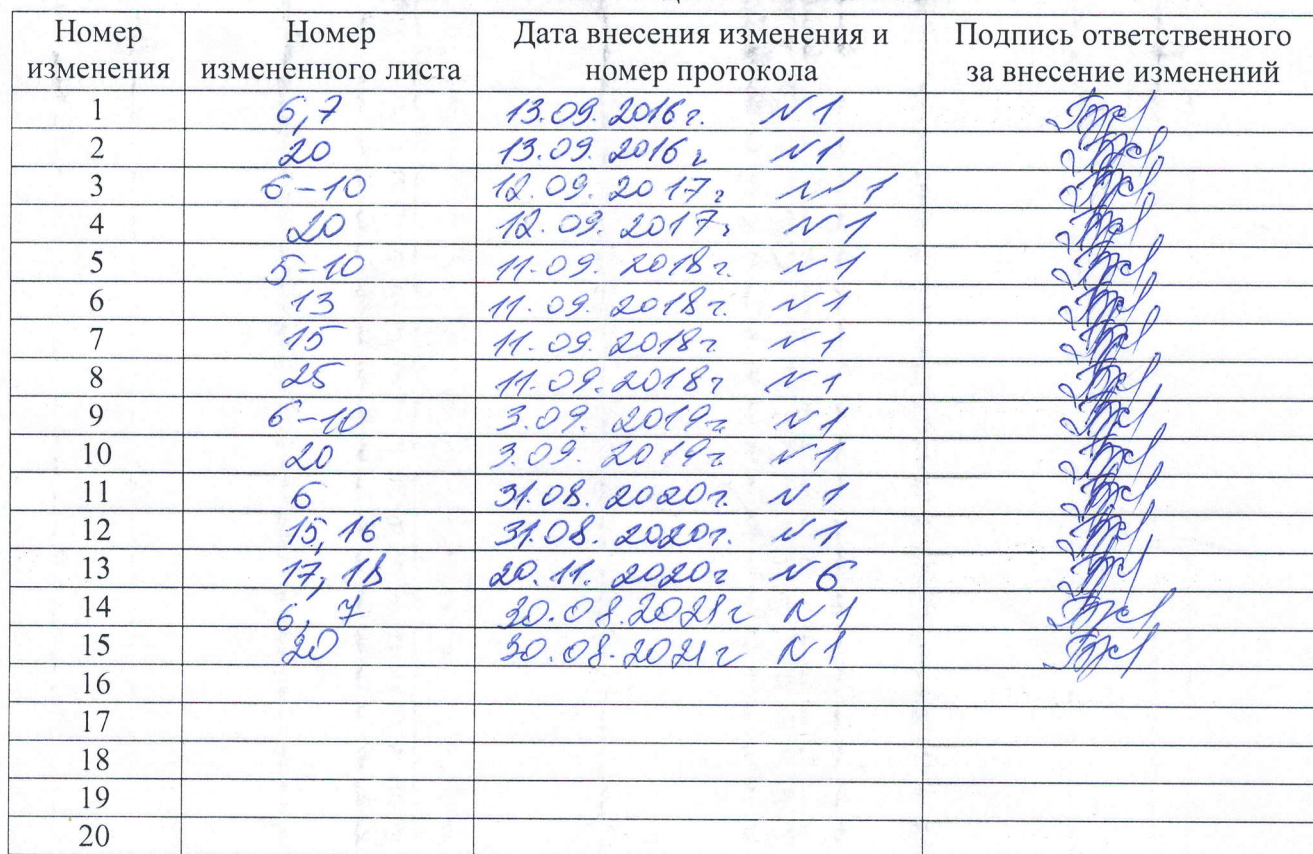 Номер изменения Номер измененного листа Дата внесения изменения и номер протокола Подпись ответственного за внесение изменений
1 6,7 13.09.2016г. N1
2 20 13.09.2016г N1
3 6-10 12.09.2017г N1
4 20 12.09.2017г N1
5 5-10 11.09.2018г. N1
6 13 11.09.2018г. N1
7 15 11.09.2018г N1
8 25 11.09.2018г N1
9 6-10 3.09.2019г N1
10 20 3.09.2019г N1
11 6 31.08.2020г. N1
12 15,16 31.08.2020г. N1
13 17,18 20.11.2020г N6
14 6,7 30.08.2021г N1
15 20 30.08.2021г N1
16
17
18
19
20